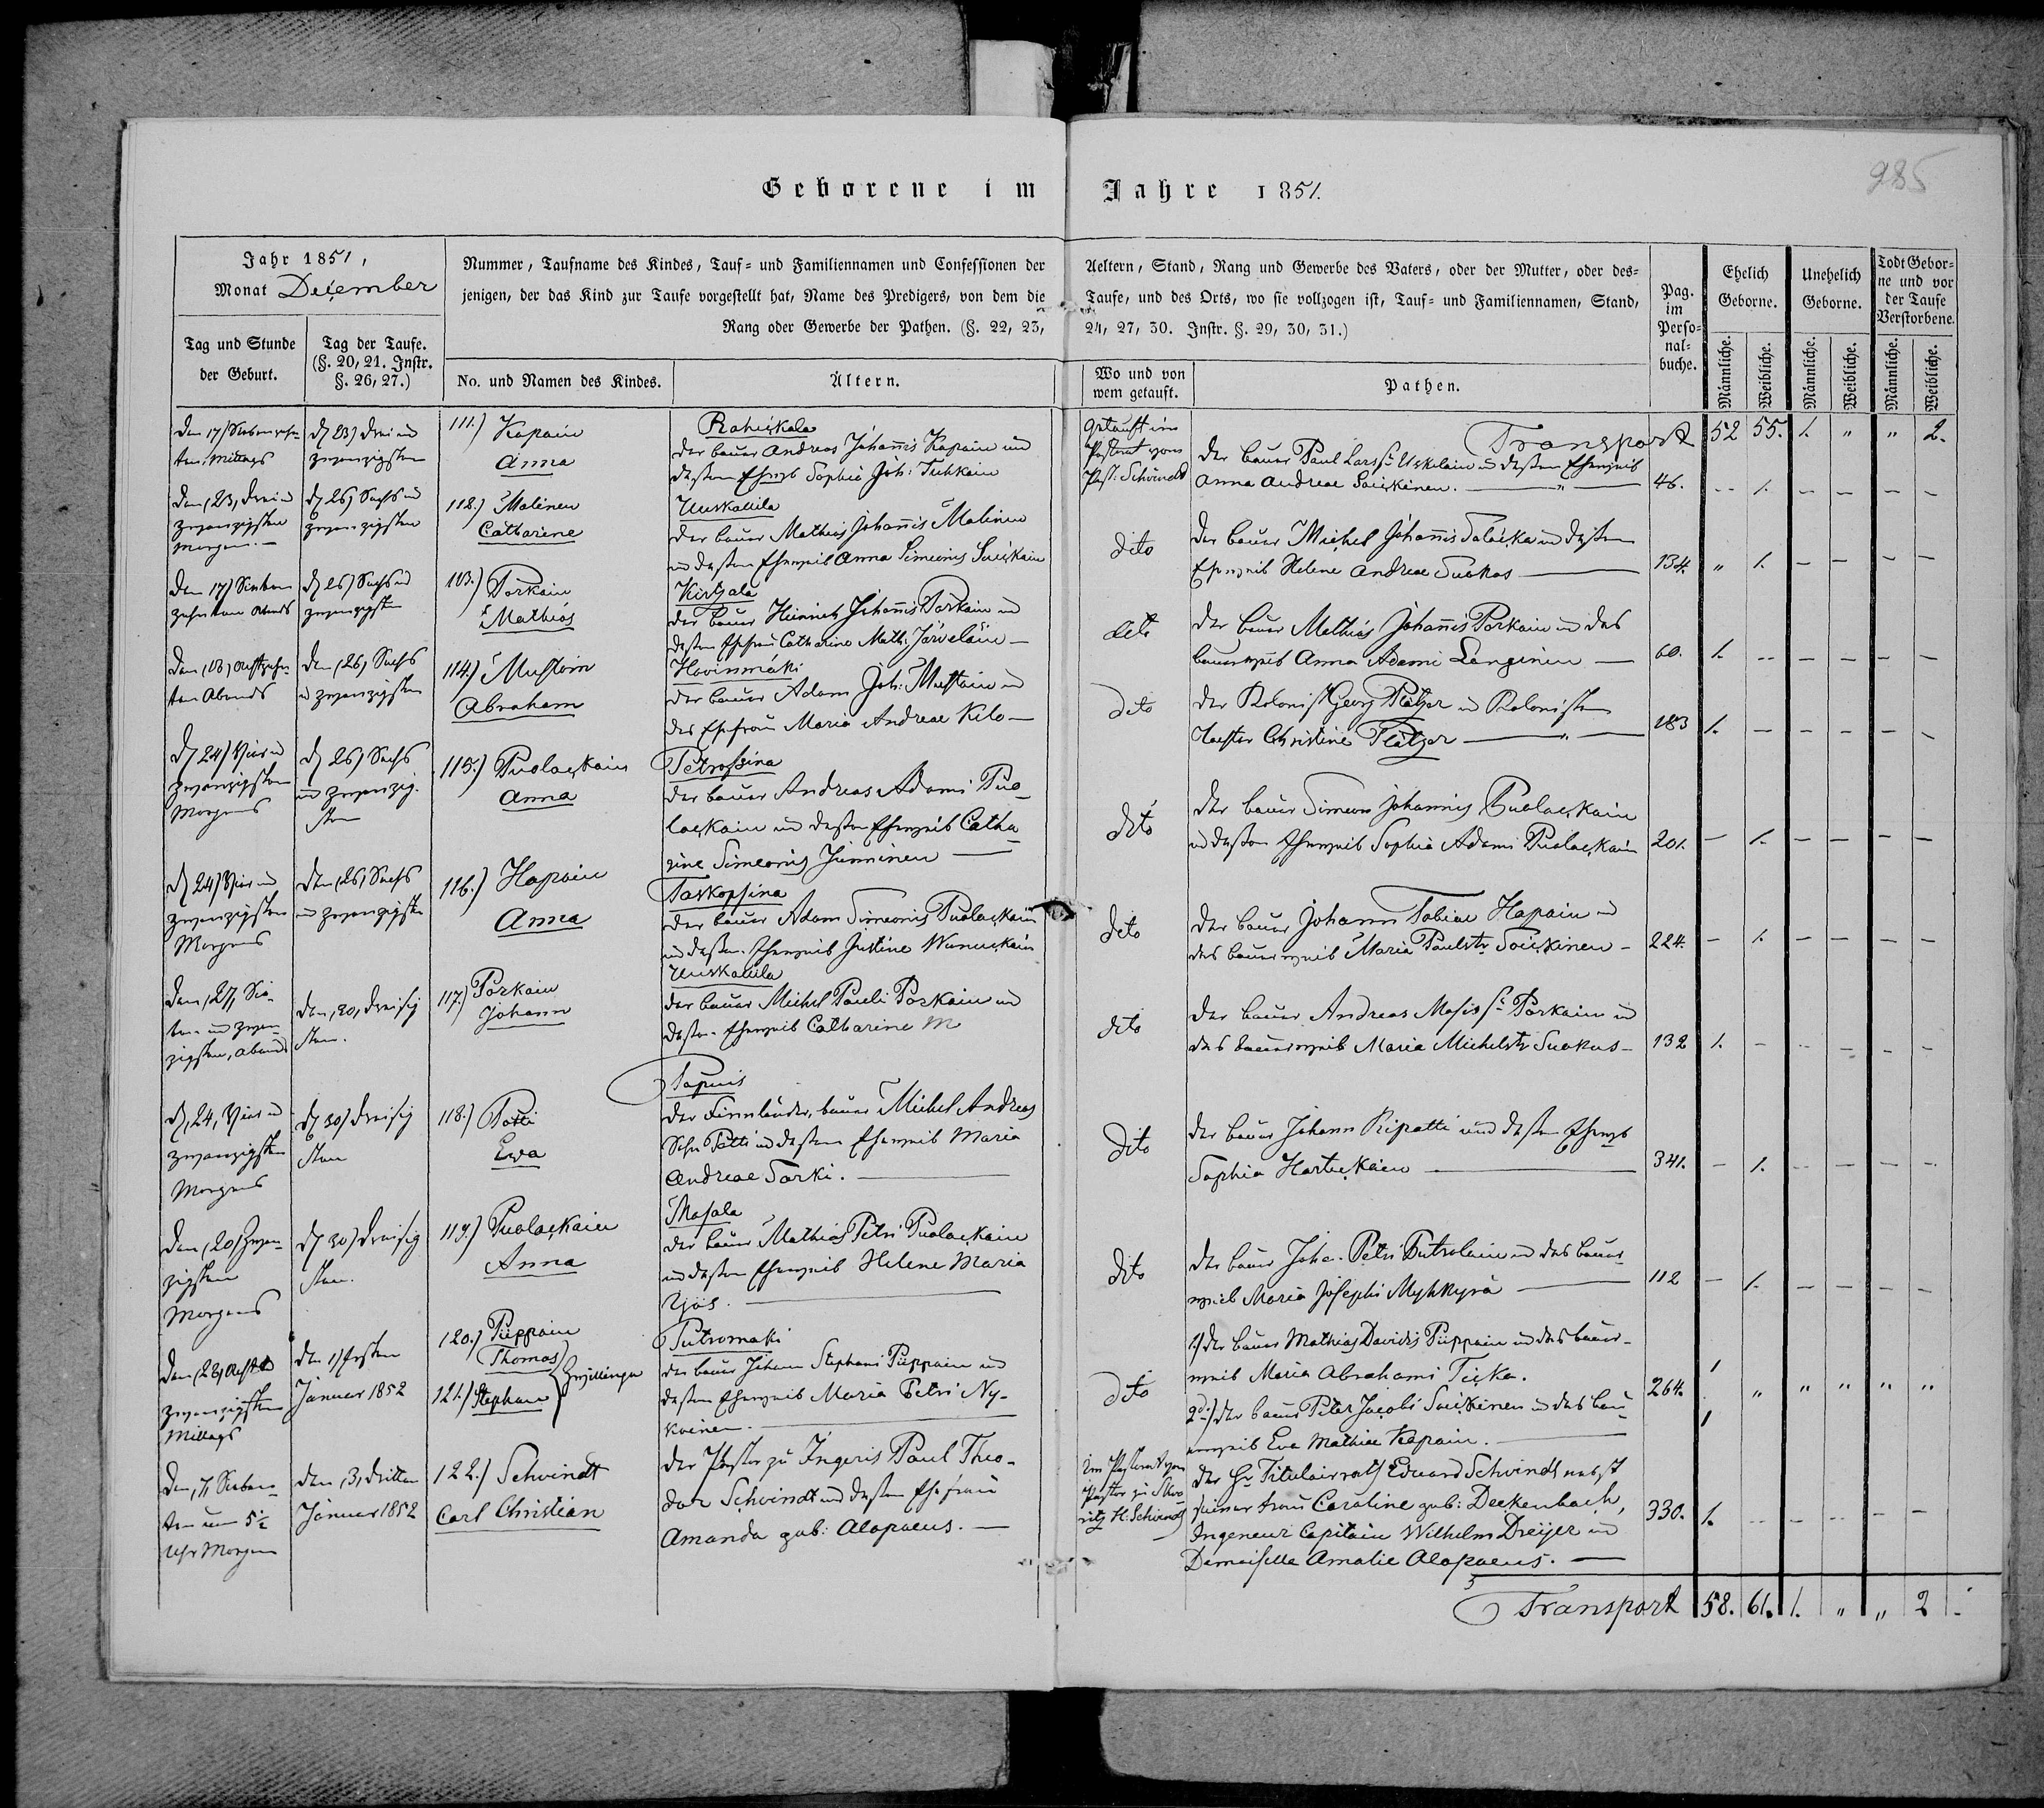 Geborene im Jahre 1851.
985
Jahr 1851,
Monat December
Tag und Stunde
der Geburt.
Tag der Taufe.
(§. 20, 21. Instr.
§. 26, 27.)
Nummer, Taufname des Kindes, Tauf= und Familiennamen und Confessionen der
jenigen, der das Kind zur Taufe vorgestellt hat, Name des Predigers, von dem die
Rang oder Gewerbe der Pathen. (§. 22, 23,
No. und Namen des Kindes.
Ältern.
Aeltern, Stand, Rang und Gewerbe des Vaters, oder der Mutter, oder des=
Taufe, und des Orts, wo sie vollzogen ist, Tauf= und Familiennamen, Stand,
24, 27, 30. Instr. §. 29, 30, 31.)
Wo und von
wem getauft.
Pathen.
Pag.
im
Perso=
nal=
buche.
Ehelich
Geborne.
Unehelich
Geborne.
Todt Gebor=
ne und vor
der Taufe
Verstorbene.
Männliche.
Weibliche.
Männliche.
Weibliche.
Männliche.
Weibliche.
Transport 52 55. 1. " " 2.
Den 17) Siebenzehn-
ten, Mittags
d 23) drei und
zwanzigsten
111.) Kapain
Anna
Der Bauer Andreas Johannis Kapain und
dessen Ehewb Sophia Joh: Tuhkain
Getauft im
Pastorat vom
Past: Schvindt
Der Bauer Paul Lars Sn Uskelain u dessen Eheweib
Anna Andreae Suikinen. — " — 46. -- 1. - - - -
Den, 23, drei u
zwanzigsten
Morgen. —
d 26) Sechs u
zwanzigsten
112.) Malinen
Catharine
Uuskallila
Der Bauer Mathias Johannis Malinen
u dessen Eheweib Anna Simeonis
dito
Der Bauer Michel Johannis u dessen
Eheweib Helene Andreae Suokas — 134. " 1. - - - -
Den 17) Sieben
zehnten Abends
d 26) Sechs u
zwanzigsten
113.) Porkain
Mathias
Kirjala
Der Bauer Heinrich Johannis Porkain u
dessen Ehefrau Catharina Math: Järveläin —
dito
Der Bauer Mathias Johannis Porkain u das
Bauerweib Anna Adami Langinen — 60. 1. -- - - - -
Den, 18) Achtzehn-
ten Abends
Den (26) Sechs
u zwanzigsten
114.) Mustoin
Abraham
Hovinmäki
Der Bauer Adam Joh: Mustain u
des Ehefrau Maria Andreae Kilo —
dito
Der Kolonist Georg Plätzer u Kolonisten
Tochter Christine Plätzer — " — 283 1. - - - - -
d 24) Vier u
zwanzigsten
Morgens
d 26) Sechs
und zwanzig-
sten
115.) Puolackain
Anna
Petrossina
Der Bauer Andreas Adami Puo-
lackain u dessen Eheweib Catha
rine Simeonis Junninen —
dito
Der Bauer Simeon Johannis Puolackain
u dessen Eheweib Sophia Adami Puolackain 201. - 1. - - - -
d 24) Vier u
zwanzigsten
Morgens
Den (26) Sechs
und zwanzigsten
116.) Hapain
Anna
Taskopsina
Der Bauer Adam Simeonis Puolackain
und dessen Eheweib Justine
dito
Der Bauer Johann Tobiae Hapain u
das Bauerweib Maria Paulstr Soickinen — 224. - 1. - - - -
Den, 27, Sie-
ben und zwan-
zigsten, Abends
Den, 30, dreisig
sten.
117.) Porkain
Johann
Uuskallila
Der Bauer Michel Pauli Porkain und
dessen Eheweib Catharine M
dito
Der Bauer Andreas Mosis Sn Porkain u
das Bauerweib Maria Michelstr Suokas — 132 1. - -- - - -
d, 24, Vier u
zwanzigsten
Morgens
d 30) dreisig
sten
118.) Potti
Ewa
Der Finnländer, Bauer Michel Andreas
Sohn Potti u dessen Eheweib Maria
Andreae Torki. —
dito
Der Bauer Johann Ripatti und dessen Ehewb
Sophia Hartuckain — 341. - 1. -- - - -
Den, 20) Zwan-
zigsten
Morgens
d 30) dreisig
sten.
119.) Puolackain
Anna
Masala
Der Bauer Mathias Petri Puolackain
und dessen Eheweib Helene Maria
Yjäs. —
dito
Der Bauer Joha. Petri Putrolain u das Bauer
weib Maria Josephi Myhkyrä — 112 - 1. - - - -
Den, 28, Acht u
zwanzigsten
Mittags
Den 1) Ersten
Januar 1852
120.) Püppain
Thomas
121.) Stephan
Zwillinge
Putromäki
Der Bauer Johann Stephani Püppain und
dessen Eheweib Maria Petri Ny-
kainen. —
dito
1) Der Bauer Mathias Davidis Püppain u das Bauer-
weib Maria Abrahami Ticka.
2d.) Der Bauer Peter Jacobi Soickinen u das Bau-
erweib Eva Mathiae Kapain. — 264. 1 1 " " " " "
Den, 7, Sieben-
ten um 5½
Uhr Morgen
Den, 3, dritten
Januar 1852
122.) Schvindt
Carl Christian
Der Pastor zu Ingeris Paul Theo-
dor Schvindt u dessen Ehefrau
Amanda geb: Alopaeus. —
Im Pastorat vom
Pastor zu Skwo-
ritz H: Schvindt
Der Hr Titulairrath Eduard Schvindt nebst
seiner Frau Caroline geb: Deekenbach,
Ingeneur Capitain Wilhelm Dreijer u
Demoiselle Amalie Alopaeus. — 330. 1. -- - -- - -
Transport 58. 61. 1. " " 2